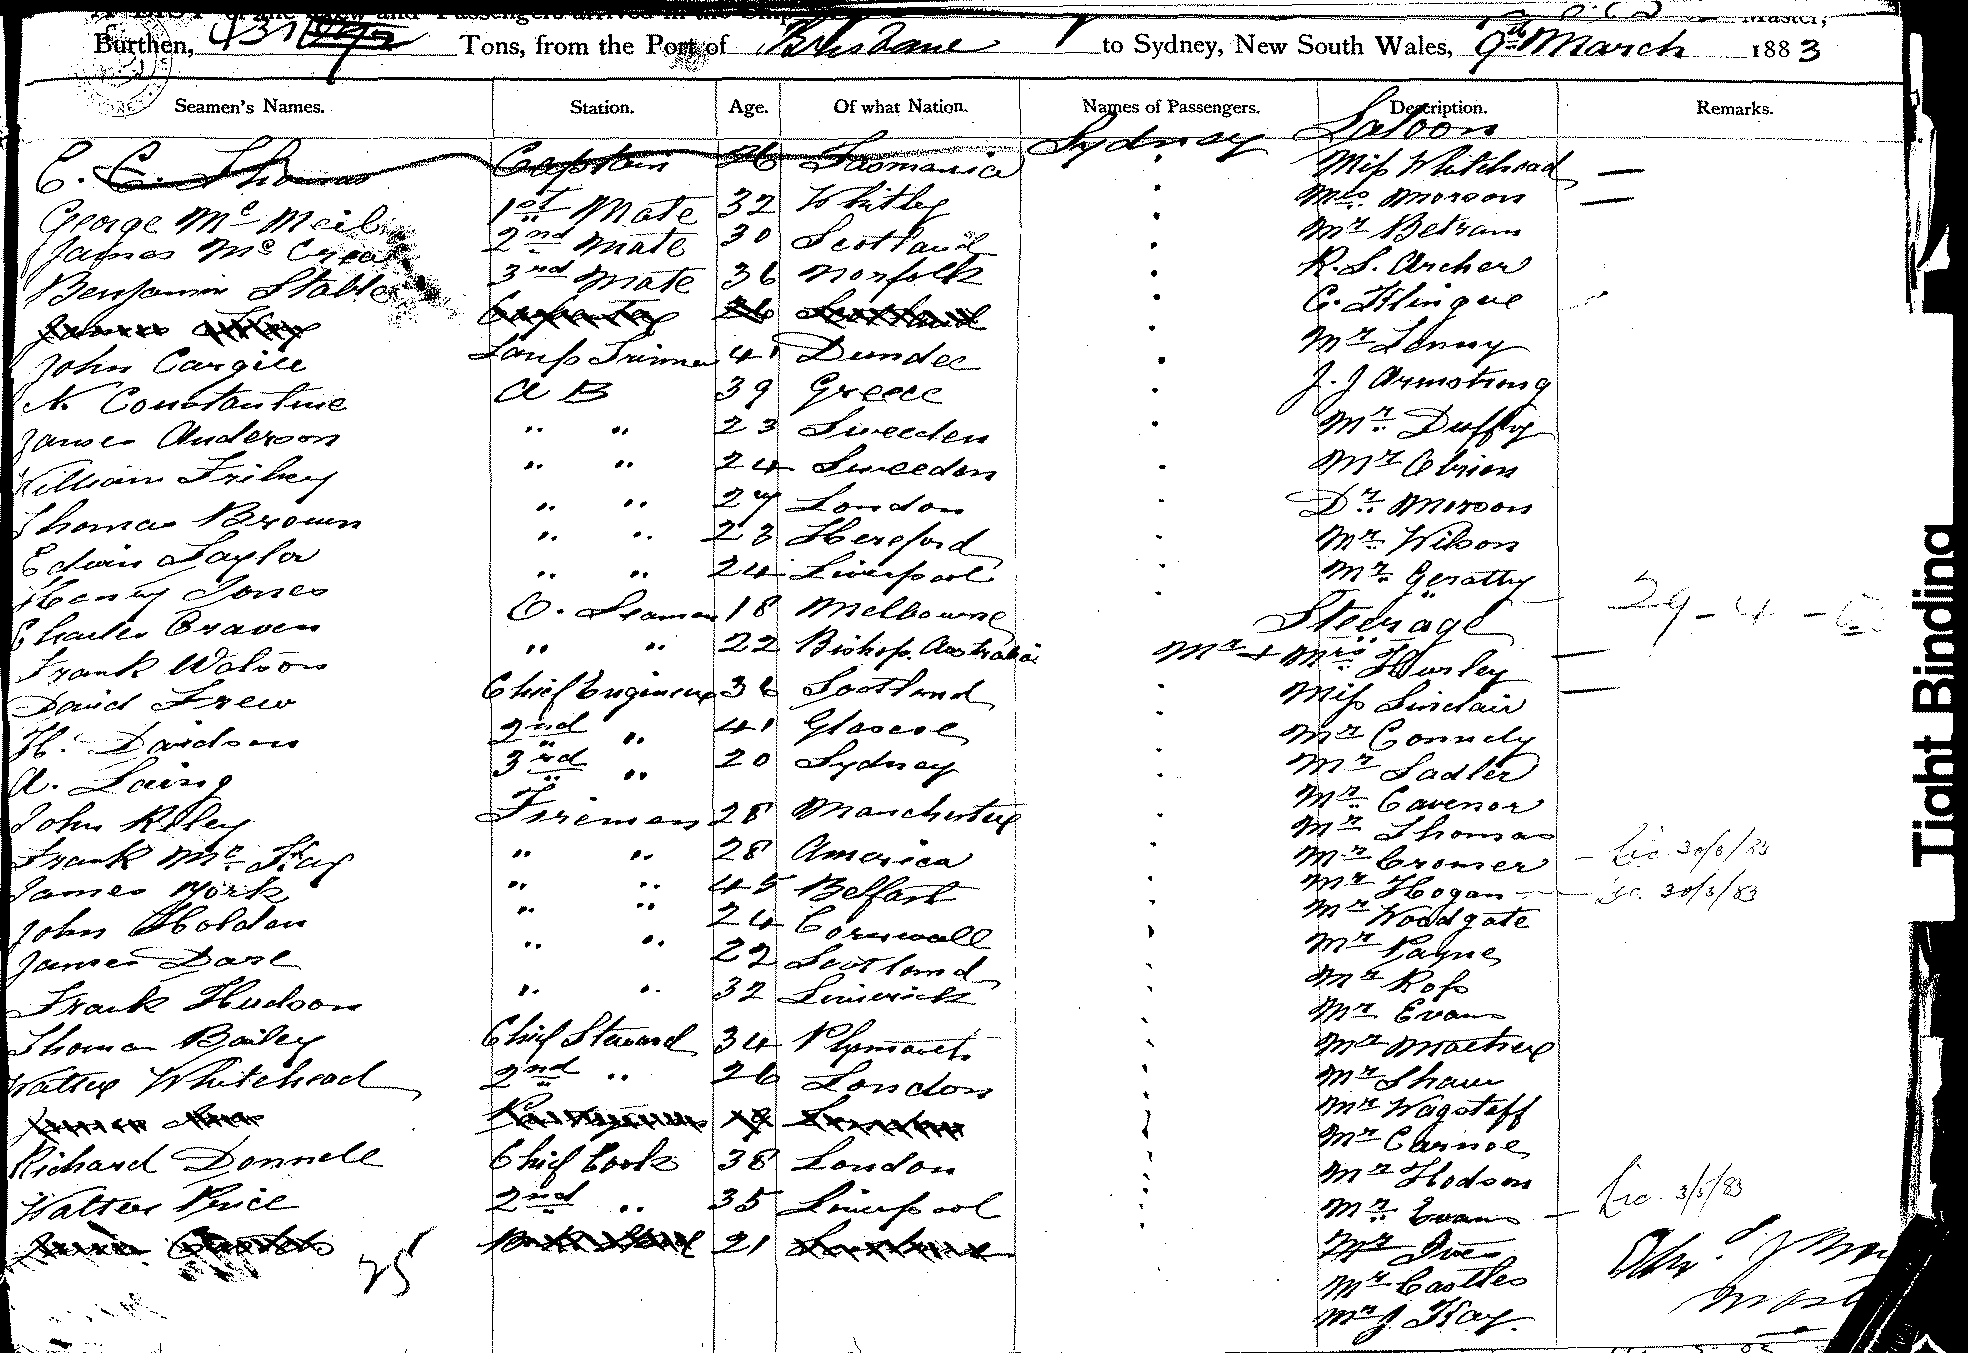 of the Crew and Passengers arrived in the Ship
Master,
Burthen, 431 Tons, from the Port of Brisbane to Sydney, New South Wales, 9th March 1883
Seamen's Names. Station. Age. Of what Nation. Names of Passengers. Description. Remarks.
Sydney Saloon
C. C. Thomas Captain 36 Tasmania Miss Whitehead —
George Mc Meil 1st Mate 32 Whitby Mrs Morson —
James Mc Crea 2nd Mate 30 Scotland Mr Betram
Benjamin Stables 3rd Mate 36 Norfolk R. S. Archer
C. Klingue
John Cargill Lamp Trimmer 41 Dundee Mr Lenny
N. Constantine A B 39 Greece J. J Armstrong
James Anderson " " 23 Sweeden Mr Duffy
William Fribey " " 24 Sweeden Mr Obrien
Thomas Brown " " 27 London Dr Morson
Edwin Taylor " " 23 Hereford Mr Wilson
Henry Jones " " 24 Liverpool Mr Geratty
Charles Craven O. Seaman 18 Melbourne Steerage 29-4-
Frank Watson " " 22 Bishop. Australia Mr + Mrs Hurley —
David Frew Chief Engineer 36 Scotland Miss Sinclair —
H. Davidson 2nd " 41 Glascow Mr Connely
A. Laing 3rd " 20 Sydney Mr Sadler
Mr Cavenor
John Riley Fireman 28 Manchester Mr Thomas
Frank Mc Kay " " 28 America Mr Cromer
James York " " 45 Belfast Mr Hogan 30/3/83
John Holden " " 24 Cornwall Mr Woodgate
James Dase " " 22 Scotland Mr Payne
Frank Hudson " " 32 Limerick Mr Ross
Mr Evans
Thomas Bailey Chief Steward 34 Plymouth Mr
Walter Whitehead 2nd " 26 London Mr Shaw
Mr Wagstaff
Richard Donnell Chief Cook 38 London Mr Carnoe
Mr Hodson
Walter Price 2nd " 35 Liverpool Mr Evans
21 Mr Ives
25
Mr Castles
Mr J. Kay.
Tight Binding